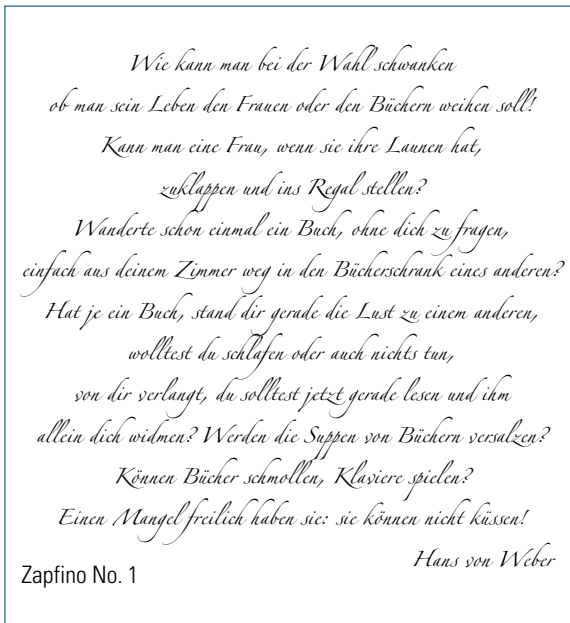 Wie kann man bei der Wahl schwanken
ob man sein Leben den Frauen oder den Büchern weihen soll!
Kann man eine Frau, wenn sie ihre Launen hat,
zuklappen und ins Regal stellen?
Wanderte schon einmal ein Buch, ohne dich zu fragen,
einfach aus deinem Zimmer weg in den Bücherschrank eines anderen?
Hat je ein Buch, stand dir gerade die Lust zu einem anderen,
wolltest du schlafen oder auch nichts tun,
von dir verlangt, du solltest jetzt gerade lesen und ihm
allein dich widmen? Werden die Suppen von Büchern versalzen?
Können Bücher schmollen, Klaviere spielen?
Einen Mangel freilich haben sie: sie können nicht küssen!
Hans von Weber
Zapfino No. 1